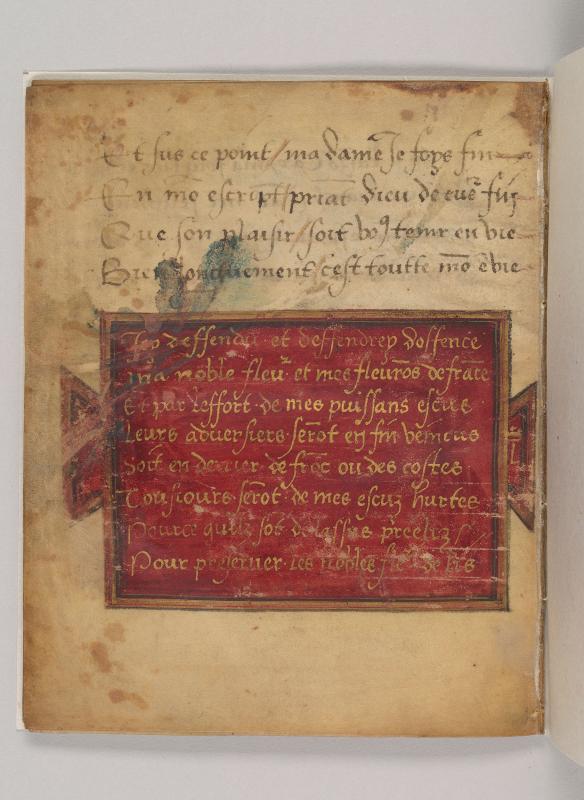 Et sus ce point / ma dame Je foys fin
En mō escript / priāt dieu de cue fin
Que son plaisir / soit voꝰ tenir en vie
Bien longuement / cest toutte mō ēvie
Iey deffendu et deffendrey doffence
Ma noble fleur et mes fleurōs defrāce
Et par leffort de mes puissans escus
Leurs adversiers serōt en fin veincus
Soit en devier de frōc ou des costes
Tousiours serōt de mes escuz hurtes
Pource quilz sōt de lassus preeliz
Pour preserver les nobles fleˢ de lis